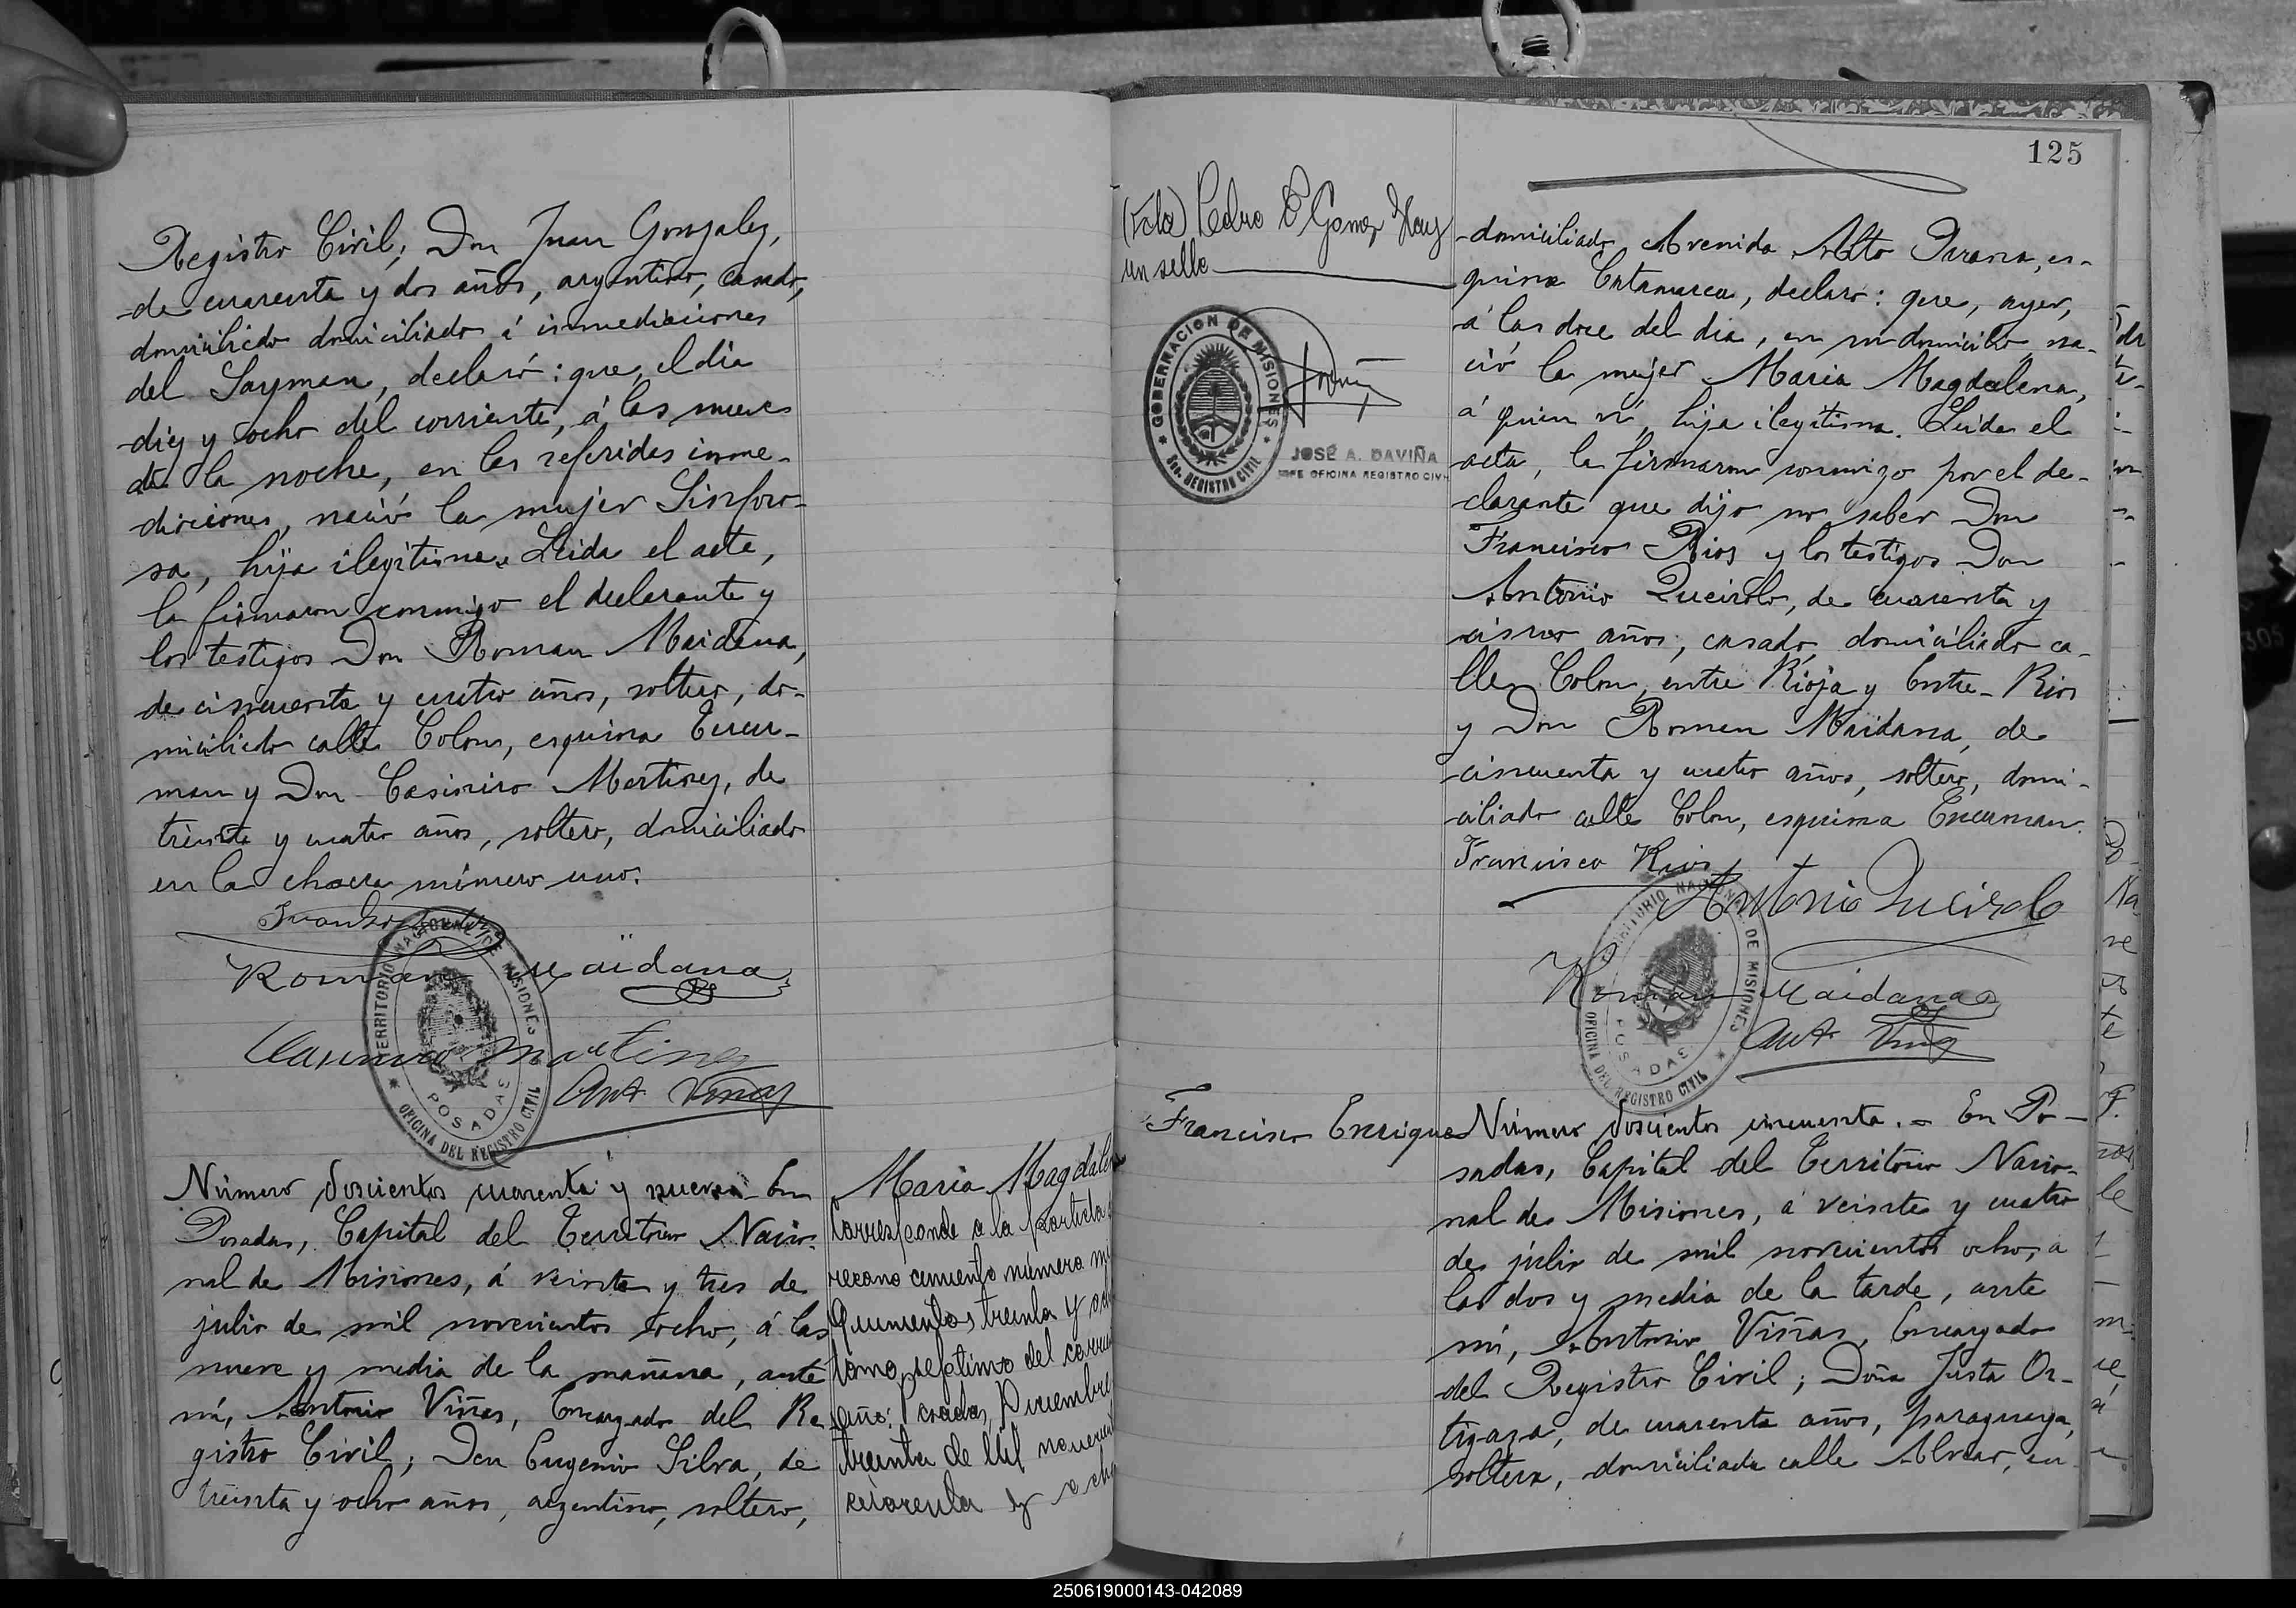 Registro Civil; Don Juan Gonzalez,
de cuarenta y dos años, argentino, casado,
domiciliado domiciliado á inmediaciones
del Zayman, declaró: que, el dia
diez y ocho del corriente, á las nueve
de la noche, en las referidas inme-
diaciones, nació la mujer Sinforo-
sa, hija ilegítima. Leida el acta,
la firmaron conmigo el declarante y
los testigos Don Roman Maidana,
de cincuenta y cuatro años, soltero, do-
miciliado calle Colon, esquina Tucu-
man y Don Casimiro Martinez, de
treinta y cuatro años, soltero, domiciliado
en la chacra número uno.
Roman Maidana
Casimiro Martinez
Ant Viñas
TERRITORIO NACIONAL DE MISIONES
POSADAS
OFICINA DEL REGISTRO CIVIL
Número doscientos cuarenta y nueve. En
Posadas, Capital del Territorio Nacio-
nal de Misiones, á veinte y tres de
julio de mil novecientos ocho, á las
nueve y media de la mañana, ante
mi, Antonio Viñas, Encargado del Re-
gistro Civil; Don Eugenio Silva, de
treinta y ocho años, argentino, soltero,
Maria Magdalena
Corresponde a la partida
reconocimiento número mil
quinientos treinta y
tomo septimo del corriente
año: Posadas, Diciembre
treinta de mil novecientos
cuarenta y ocho
125
(Vale) Pedro E Gomez Hay
un sello
GOBERNACION DE MISIONES
REGISTRO CIVIL
JOSÉ A. DAVIÑA
JEFE OFICINA REGISTRO CIVIL
domiciliado Avenida Alto Parana, es-
quina Catamarca, declaró: que, ayer,
á las doce del dia, en su domicilio, na-
ció la mujer Maria Magdalena,
á quien ví, hija ilegítima. Leida el
acta, la firmaron conmigo por el de-
clarante que dijo no saber Don
Francisco Rios y los testigos Don
Antonio Queirolo, de cuarenta y
cinco años, casado, domiciliado ca-
lle Colon, entre Rioja y Entre-Rios
y Don Roman Maidana, de
cincuenta y cuatro años, soltero, domi-
ciliado calle Colon, esquina Tucuman.
Francisco Rios
Antonio Queirolo
Roman Maidana
Ant Viñas
TERRITORIO NACIONAL DE MISIONES
POSADAS
OFICINA DEL REGISTRO CIVIL
Francisco Enrique
Número doscientos cincuenta. = En Po-
sadas, Capital del Territorio Nacio-
nal de Misiones, á veinte y cuatro
de julio de mil novecientos ocho, á
las dos y media de la tarde, ante
mi, Antonio Viñas, Encargado
del Registro Civil; Doña Justa Or-
tigaza, de cuarenta años, paraguaya,
soltera, domiciliada calle Alvear, en-
250619000143-042089